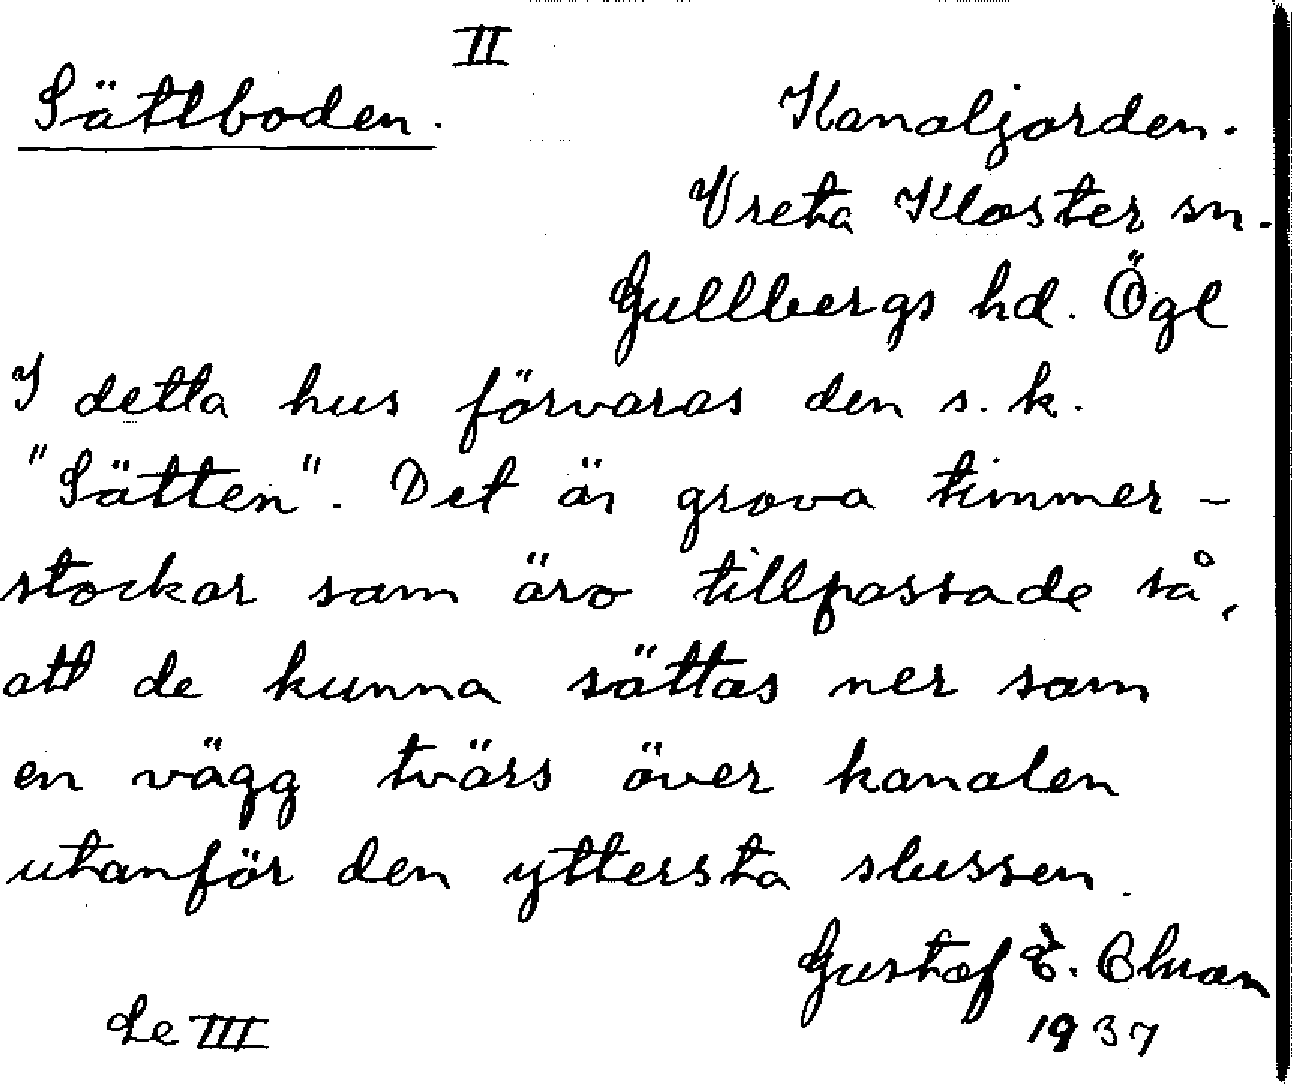 II
Sättboden.
Kanaljorden.
Vreta Kloster sn.
Gullbergs hd. Ögl
I detta hus förvaras den s. k.
"Sätten". Det är grova timmer-
stockar som äro tillpassade så,
att de kunna sättas ner som
en vägg tvärs över kanalen
utanför den yttersta slussen.
Gustaf E.
Se III
1937